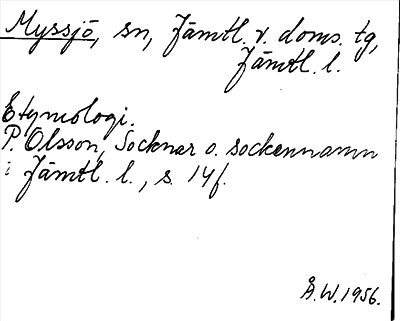 Myssjö, sn, Jämtl. v. doms. tg,
Jämtl. l.
Etymologi.
P. Olsson, Socknar o. sockennamn
i Jämtl. l., s. 14f.
Å.W. 1956.